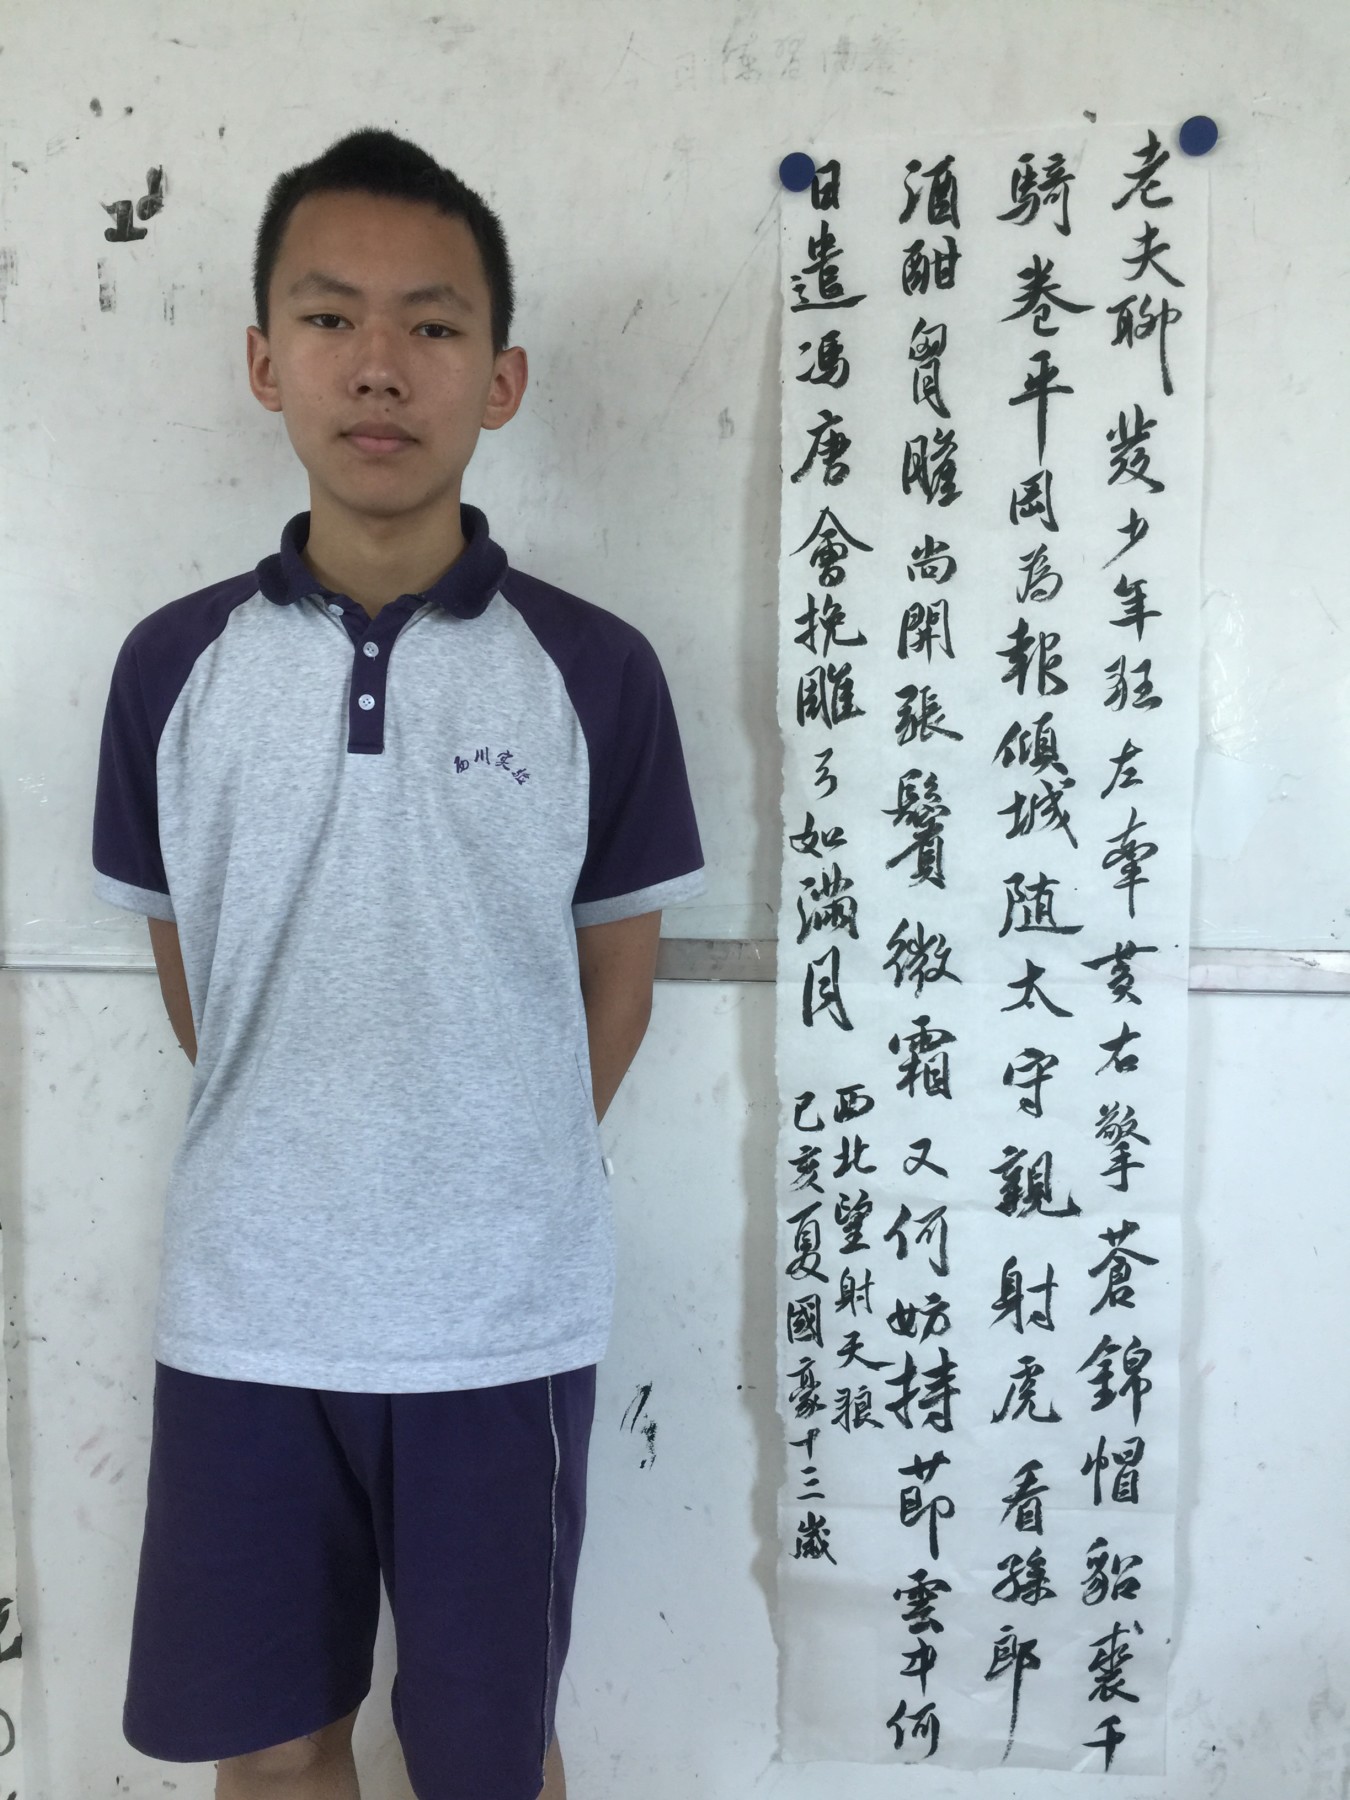 老夫聊發少年狂左牽黃右擎蒼錦帽貂裘千
騎卷平岡為報傾城随太守親射虎看孫郎
酒酣胷膽尚開張鬢微霜又何妨持節雲中何
日遣馮唐會挽雕弓如滿月
西北望射天狼
己亥夏國豪十三歲
川实验
今日练习